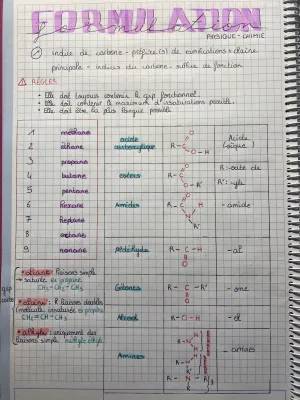 FORMULATION
PHYSIQUE-CHIMIE
indice de carbone - préfixe(s) de ramifications + chaîne
principale - indice du carbone - suffixe de fonction
⚠ RÈGLES
• Elle doit toujours contenir le gp fonctionnel.
• Elle doit contenir le maximum d'insaturations possible.
• Elle doit être la plus longue possible
1 méthane
2 éthane
3 propane
4 butane
5 pentane
6 hexane
7 heptane
8 octane
9 nonane
acide carboxylique R-C O O-H Acide (oïque)
esters R-C O O-R' R-oate de R'-yle
Amides R-C O N - amide
Aldéhyde R-C-H O - al
Cétones R-C-R' O - one
Alcool R-O-H - ol
Amines R-N-H H R-N R' - amines
• alcane: liaisons simples
→ saturée ex propane
CH₃-CH₂-CH₃
• alcène: liaisons doubles
(molécule insaturée) ex propène
CH₂=CH-CH₃
• alkyle: uniquement des
liaisons simples méthyle éthyle